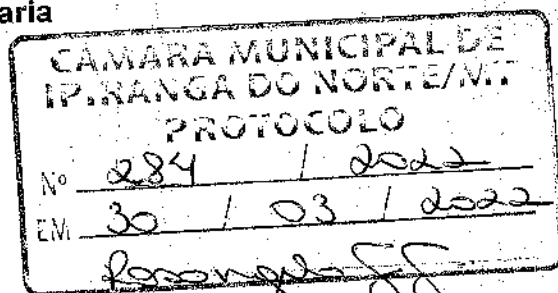 aria
CÂMARA MUNICIPAL DE
IPIRANGA DO NORTE/MT
PROTOCOLO
Nº 284 / 2022
EM 30 / 03 / 2022